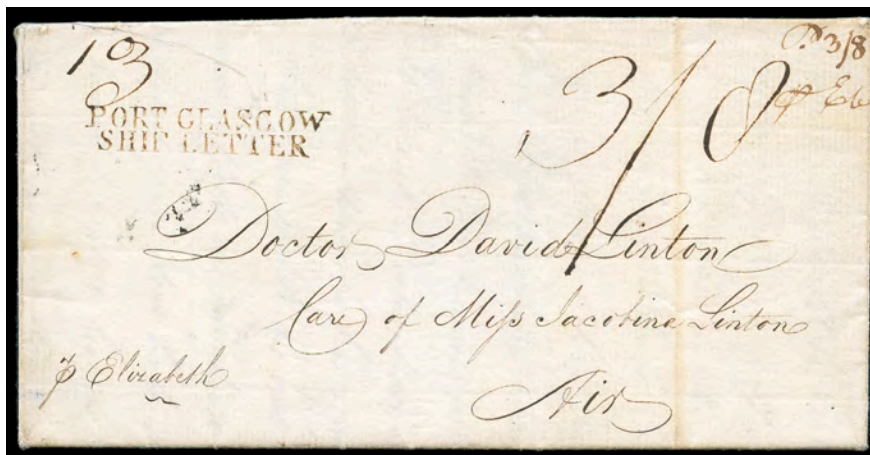 13
PORT GLASGOW
SHIP LETTER
3/8
3/8
Doctor David Linton
Care of Miſs Jacobina Linton
Air
p Elizabeth